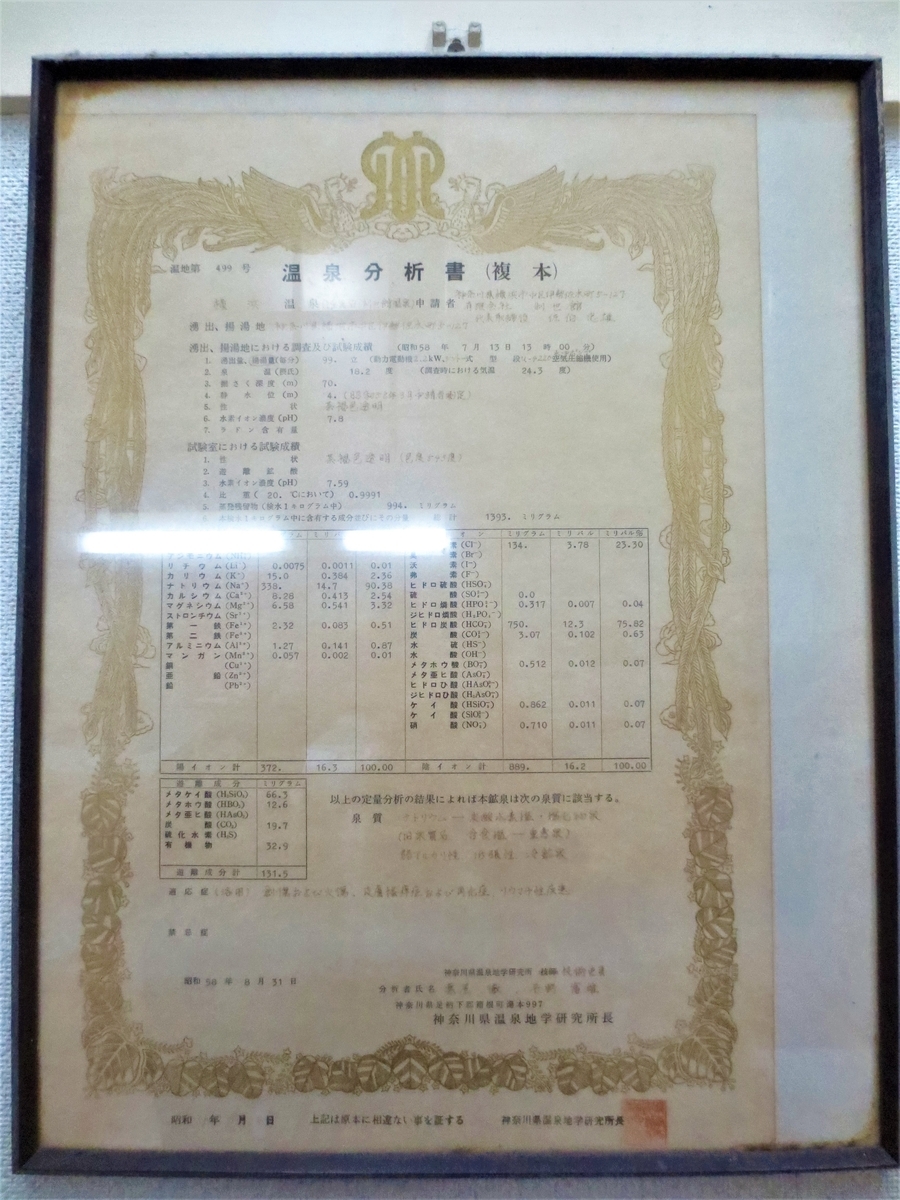 温地第 499 号 温泉分析書(複本)
申請者
湧出、揚湯地
湧出、揚湯地における調査及び試験成績 (昭和58 年 7 月 13日 13 時 00 分)
1. 湧出量、揚湯量(毎分) 99. 立 (動力電動機2.2kW、 式 型 段 空気圧縮機使用)
2. 泉 温(摂氏) 18.2 度 (調査時における気温 24.3 度)
3. 掘さく深度(m) 70.
4. 静水位(m) 4.
5. 性 状 黒褐色透明
6. 水素イオン濃度(pH) 7.8
7. ラドン含有量
試験室における試験成績
1. 性 状 黒褐色透明
2. 遊離鉱酸
3. 水素イオン濃度(pH) 7.59
4. 比重( 20. ℃において) 0.9991
5. 蒸発残留物(検水1キログラム中) 994. ミリグラム
6. 本鉱泉1キログラム中に含有する成分並びにその分量 総計 1393. ミリグラム
イオン ミリグラム ミリバル ミリバル%
素(Cl⁻) 134. 3.78 23.30
素(Br⁻)
リチウム(Li⁺) 0.0075 0.0011 0.01 沃素(I⁻)
カリウム(K⁺) 15.0 0.384 2.36 弗素(F⁻)
ナトリウム(Na⁺) 338. 14.7 90.38 ヒドロ硫酸(HSO₄⁻)
カルシウム(Ca²⁺) 8.28 0.413 2.54 硫酸(SO₄²⁻) 0.0
マグネシウム(Mg²⁺) 6.58 0.541 3.32 ヒドロ燐酸(HPO₄²⁻) 0.317 0.007 0.04
ストロンチウム(Sr²⁺) ジヒドロ燐酸(H₂PO₄⁻)
第一鉄(Fe²⁺) 2.32 0.083 0.51 ヒドロ炭酸(HCO₃⁻) 750. 12.3 75.82
第二鉄(Fe³⁺) 炭酸(CO₃²⁻) 3.07 0.102 0.63
アルミニウム(Al³⁺) 1.27 0.141 0.87 水硫(HS⁻)
マンガン(Mn²⁺) 0.057 0.002 0.01 水酸(OH⁻)
銅(Cu²⁺) メタホウ酸(BO₂⁻) 0.512 0.012 0.07
亜鉛(Zn²⁺) メタ亜ヒ酸(AsO₂⁻)
鉛(Pb²⁺) ヒドロひ酸(HAsO₄²⁻)
ジヒドロひ酸(H₂AsO₄⁻)
ケイ酸(HSiO₃⁻) 0.862 0.011 0.07
ケイ酸(SiO₃²⁻)
硝酸(NO₃⁻) 0.710 0.011 0.07
陽イオン計 372. 16.3 100.00 陰イオン計 889. 16.2 100.00
遊離成分 ミリグラム
メタケイ酸(H₂SiO₃) 66.3
メタホウ酸(HBO₂) 12.6
メタ亜ヒ酸(HAsO₂)
炭酸(CO₂) 19.7
硫化水素(H₂S)
有機物 32.9
遊離成分計 131.5
以上の定量分析の結果によれば本鉱泉は次の泉質に該当する。
泉質 ナトリウム―炭酸水素塩・塩化物泉
(旧泉質名 含食塩―重曹泉)
弱アルカリ性 低張性 冷鉱泉
適応症(浴用)
禁忌症
昭和 58 年 8 月 31 日
神奈川県温泉地学研究所 技師
分析者氏名
神奈川県足柄下郡箱根町湯本997
神奈川県温泉地学研究所長
昭和 年 月 日 上記は原本に相違ない事を証する 神奈川県温泉地学研究所長